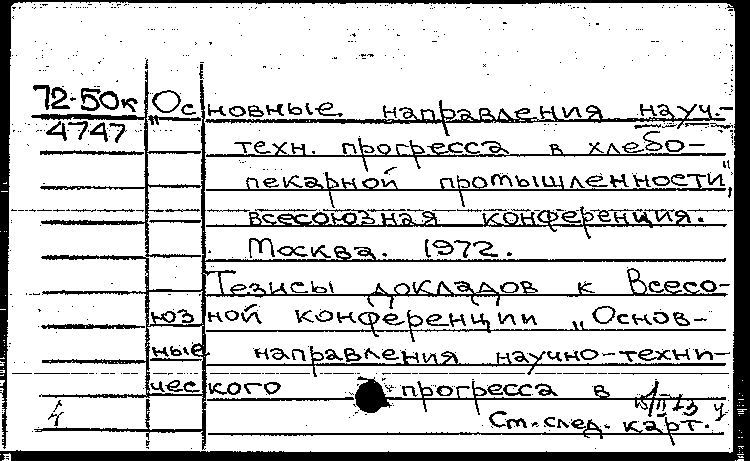 72-50к "Основные направления науч.-
4747 техн. прогресса в хлебо-
пекарной промышленности",
всесоюзная конференция.
Москва. 1972.
Тезисы докладов к Всесо-
юзной конференции „Основ-
ные направления научно-техни-
ческого прогресса в
См. след. карт.